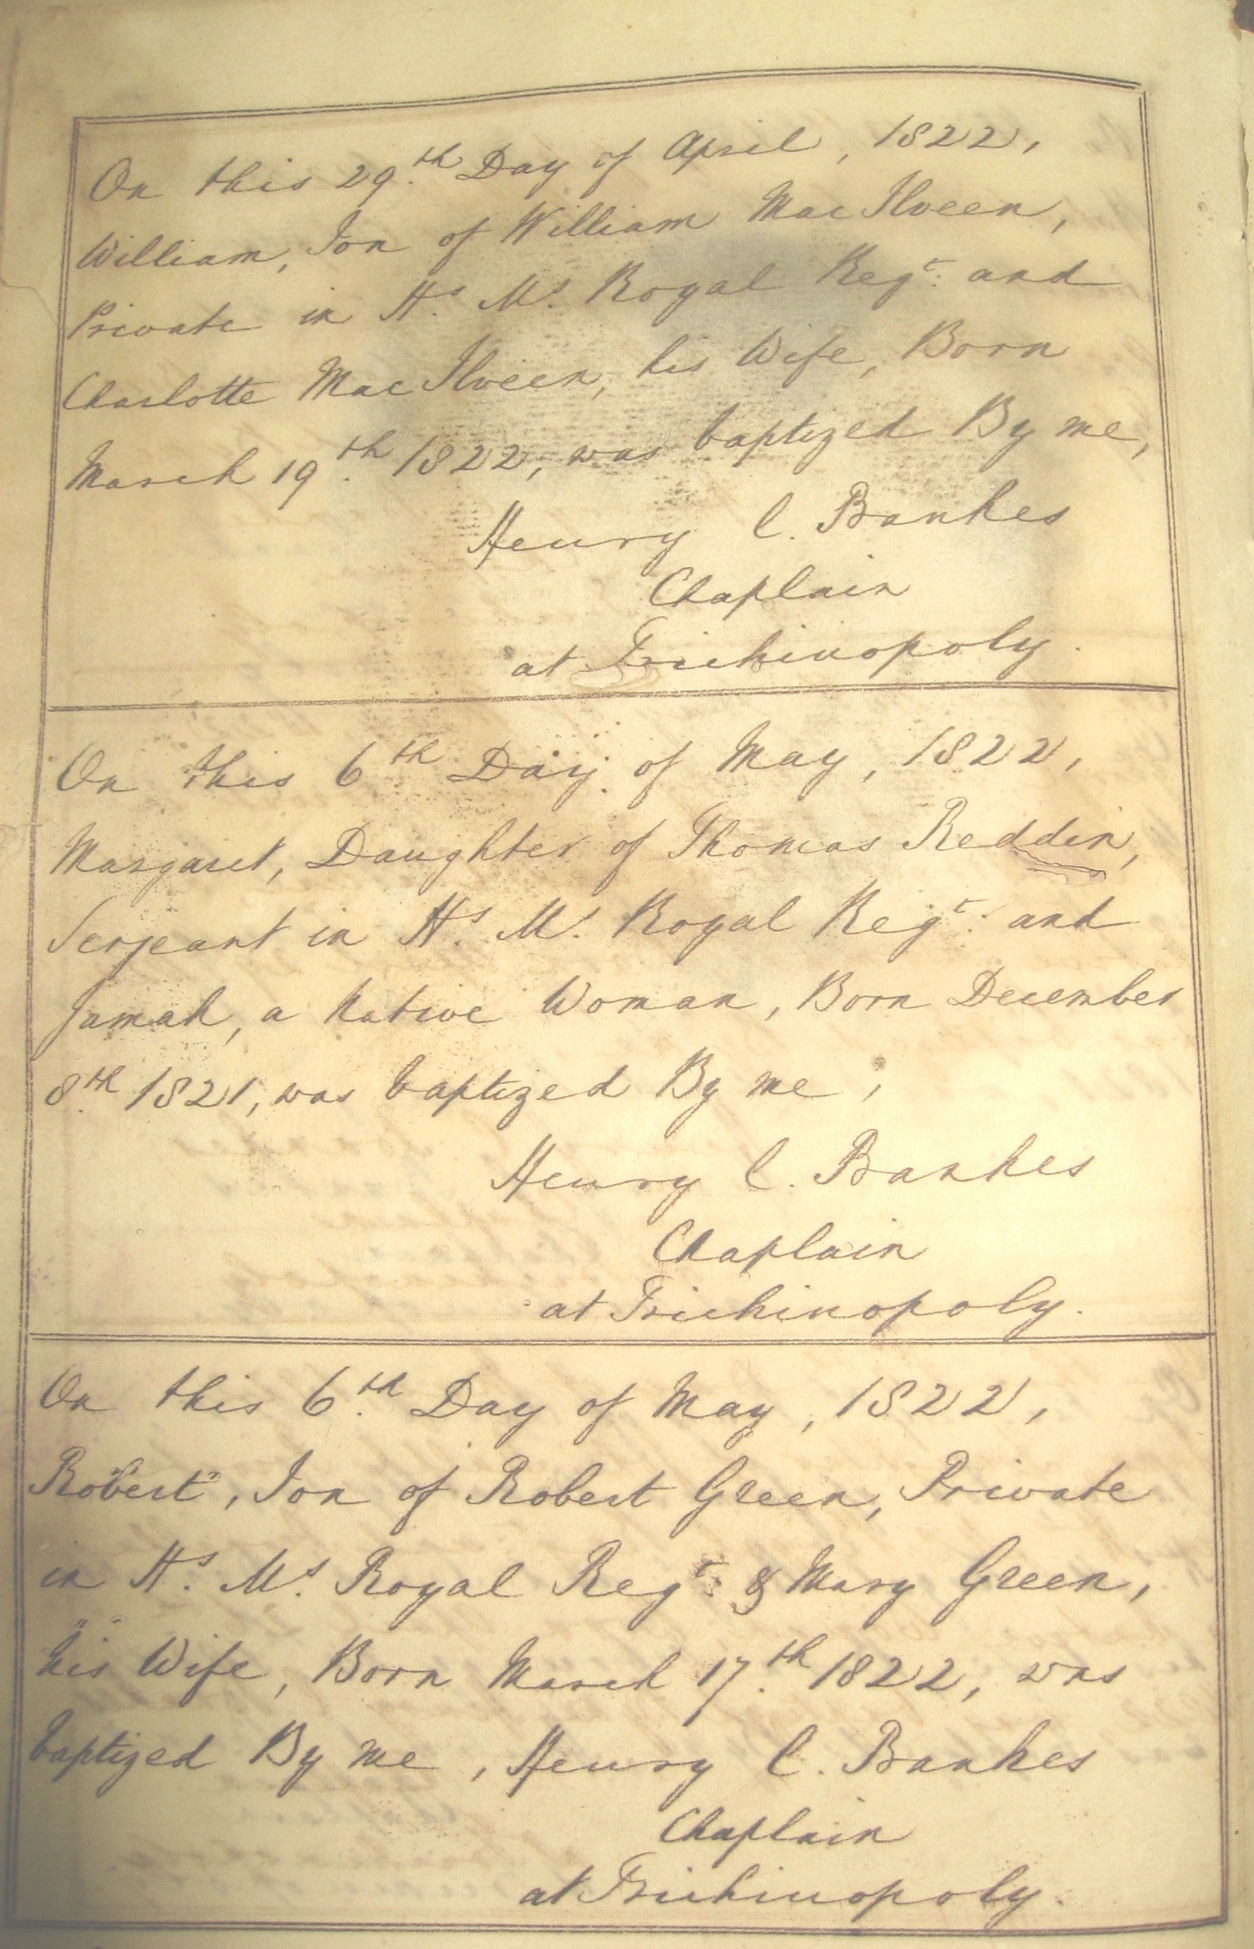 On this 29.th Day of April, 1822,
William, Son of William MacIlveen,
Private in H.s M.s Royal Reg.t and
Charlotte MacIlveen, his Wife, Born
March 19.th 1822, was baptized By me,
Henry C. Bankes
Chaplain
at Trichinopoly.
On this 6.th Day of May, 1822,
Margaret, Daughter of Thomas Reddin,
Serjeant in H.s M.s Royal Reg.t and
Jumah, a Native Woman, Born December
8.th 1821, was baptized By me,
Henry C. Bankes
Chaplain
at Trichinopoly.
On this 6.th Day of May, 1822,
Robert, Son of Robert Green, Private
in H.s M.s Royal Reg.t & Mary Green,
his Wife, Born March 17.th 1822, was
baptized By me, Henry C. Bankes
Chaplain
at Trichinopoly.